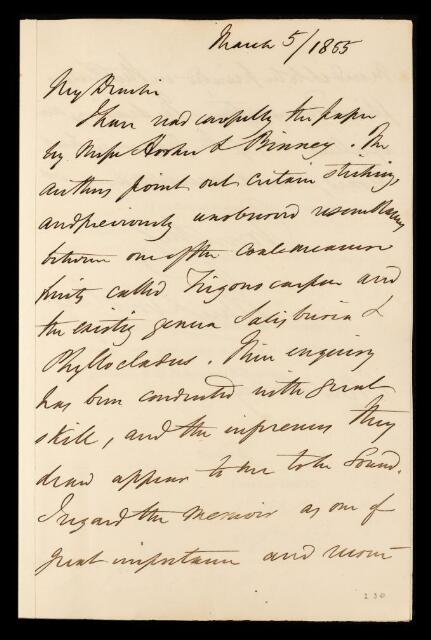 March 5/1855
My Dr Sir
I have read carefully the paper
by Messrs Hooker & Binney. The
authors point out certain striking,
and previously unobserved resemblances
between one of the coal measure
fruits called Trigonocarpon and
the existing genera Salisburia &
Phyllocladus. Their enquiry
has been conducted with great
skill, and the inferences they
draw appear to me to be sound.
I regard the Memoir as one of
great importance and most
230